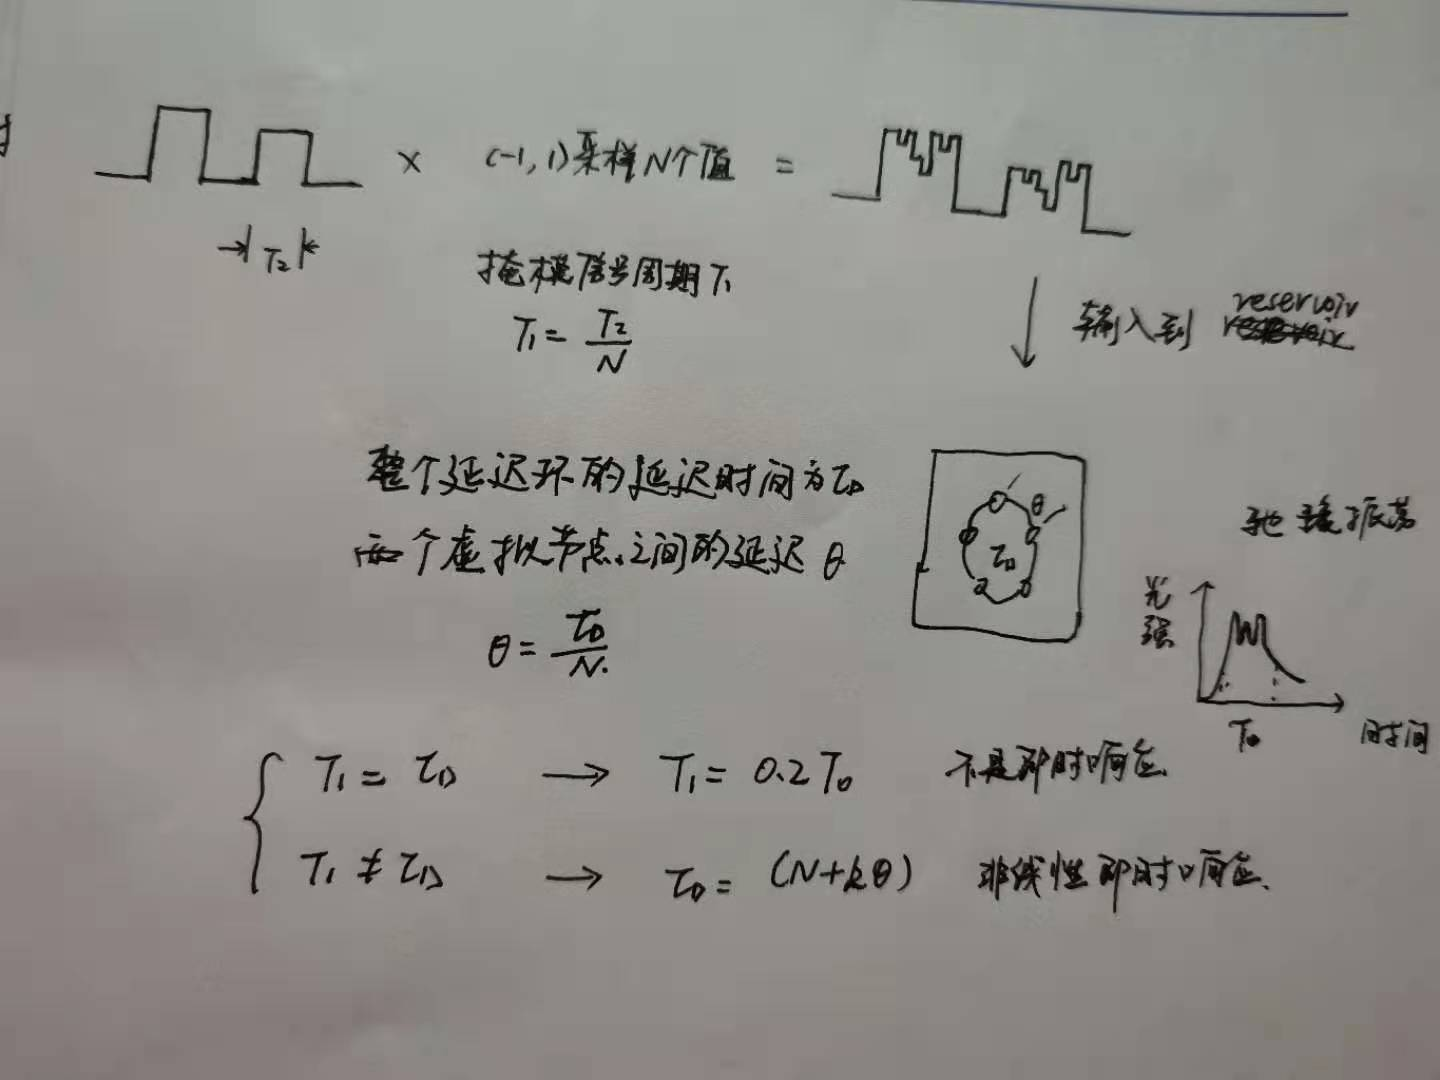 × (-1,1)采样N个值 =
T₂
掩模信号周期T₁
T₁ = T₂/N
输入到 reservoir
整个延迟环的延迟时间为τD
每个虚拟节点之间的延迟 θ
θ = τD/N.
θ
τD
弛豫振荡
光强
T₀
时间
T₁ = τD → T₁ = 0.2T₀ 不是即时响应.
T₁ ≠ τD → τD = (N+kθ) 非线性即时响应.